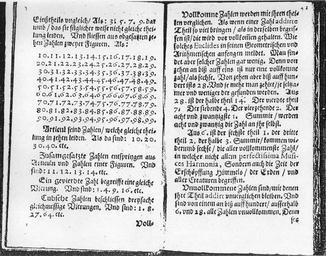 Einsthails vngleich/ Als: 3. 5. 7. 9. da
vnd/ das sie füglicher weise nicht gleiche thei-
lung leiden. Vnd fliessen aus obgesatzten ze-
hen Zahlen zweyer Figuren. Als:
10. 11. 12. 13. 14. 15. 16. 17. 18. 19.
20. 21. 22. 23. 24. 25. 26. 27. 28. 29.
30. 31. 32. 33. 34. 35. 36. 37. 38. 39.
40. 41. 42. 43. 44. 45. 46. 47. 48. 49.
50. 51. 52. 53. 54. 55. 56. 57. 58. 59.
60. 61. 62. 63. 64. 65. 66. 67. 68. 69.
70. 71. 72. 73. 74. 75. 76. 77. 78. 79.
80. 81. 82. 83. 84. 85. 86. 87. 88. 89.
90. 91. 92. 93. 94. 95. 96. 97. 98. 99.
Articul seind Zahlen/ welche gleiche thei-
lung in zehen leiden. Als da sind: 10. 20.
30. 40. etc.
Zusamgesatzte Zahlen entspringen aus
Articuln vnd Zahlen einer Figuren. Vnd
sind: 11. 12. 13. 14. etc.
Ein gevierdte Zahl begreifft eine gleiche
Vierung. Vnd sind: 1. 4. 9. 16. etc.
Cubische Zahlen beschliessen dreyfache
gleichmessige Vierungen. Vnd sind: 1. 8.
27. 64. etc.
Voll-
Vollkommene Zahlen werden mit jhren thei-
len verglichen. Als wenn einer Zahl
Theil so viel bringen/ als in
sie ist/ wird vor vollkommen gehalten. Wie
solches Euclides in seinen Geometrischen vnd
Arithmetischen anfangen meldet. Man fin-
det aber solcher Zahlen gar wenig. Denn von
zehen an biß auff eins ist nur eine vollkommene
Zahl/ als sechs. Von zehen aber biß auff hun-
dert ist 28. Vnd
mer vnd weniger der gefunden werden. Aus
28. ist der halbe theil 14. Der vierdte theil
7. Der siebende 4. Der vierzehende 2. Der
acht vnd zwantzigste 1. Summir/ werden
acht vnd zwantzig die Zahl an jhr selbst.
Aus 6. ist der sechste theil 1. der dritte
theil 2. der halbe 3. Summir/ kommen wi-
derumb sechs/ die aller vollkommenste Zahl/
in welcher nicht allein perfectissima Musi-
ces Harmonia, Sondern auch die Zeit der
Erschöpffung Himmels/ der Erden/ vnd
aller Creaturen begriffen.
Vnvollkommene Zahlen sind/ mit denen
jhre Theil addiret vnuergleichen bleiben. Vnd
sind von einem an biß auff hundert/ ausserhalb
6. vnd 28. aller Zahlen vnvollkommen. Denn